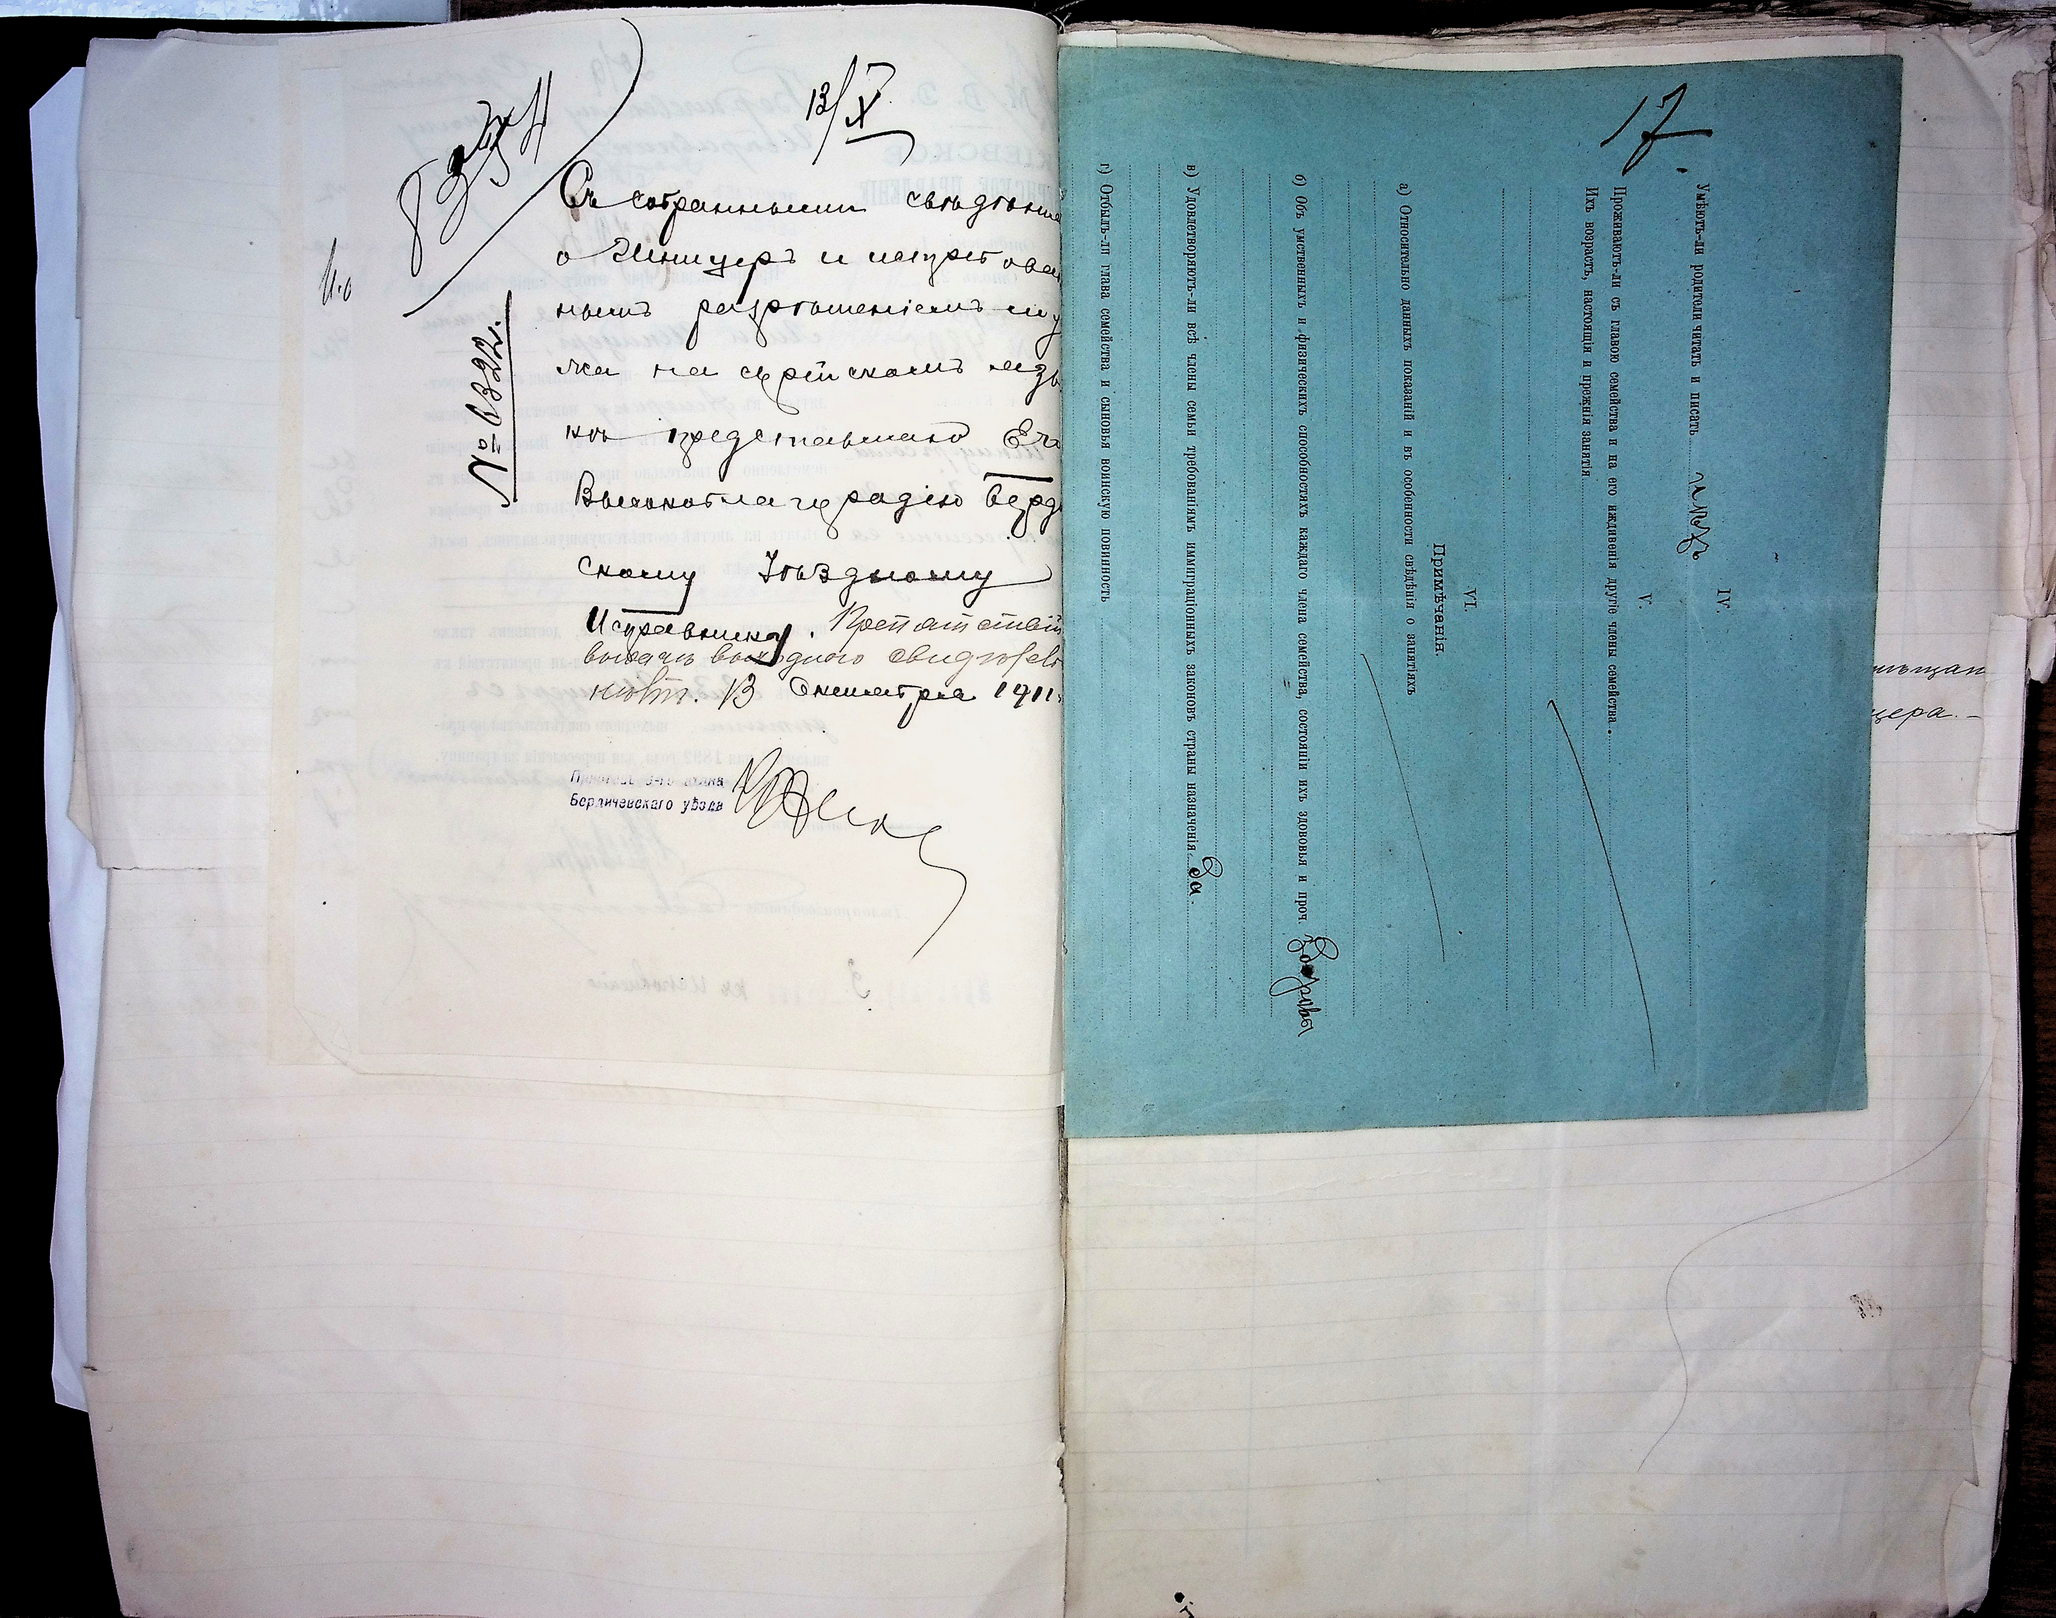 13/X
Съ собранными свѣдѣні
о Шницерѣ и истребован
нымъ разрѣшеніемъ му
жа на еврейскомъ язы
кѣ представляю Его
Высокоблагородію Берд
скому Уѣздному
Исправнику. Препятствій
выдачѣ выѣздного свидѣтел
нѣтъ. 13 Октября 1911
№ 6322.
Приставъ 3-го стана
Бердичевскаго уѣзда
17
IV.
Умѣютъ-ли родители читать и писать
V.
Проживаютъ-ли съ главою семейства и на его иждивеніи другіе члены семейства.
Ихъ возрастъ, настоящія и прежнія занятія
VI.
Примѣчанія.
а) Относительно данныхъ показаній и въ особенности свѣдѣнія о занятіяхъ
б) Объ умственныхъ и физическихъ способностяхъ каждаго члена семейства, состояніи ихъ здоровья и проч. Здоровы
в) Удовлетворяютъ-ли всѣ члены семьи требованіямъ иммиграціонныхъ законовъ страны назначенія да.
г) Отбылъ-ли глава семейства и сыновья воинскую повинность
мѣщан
цера.-